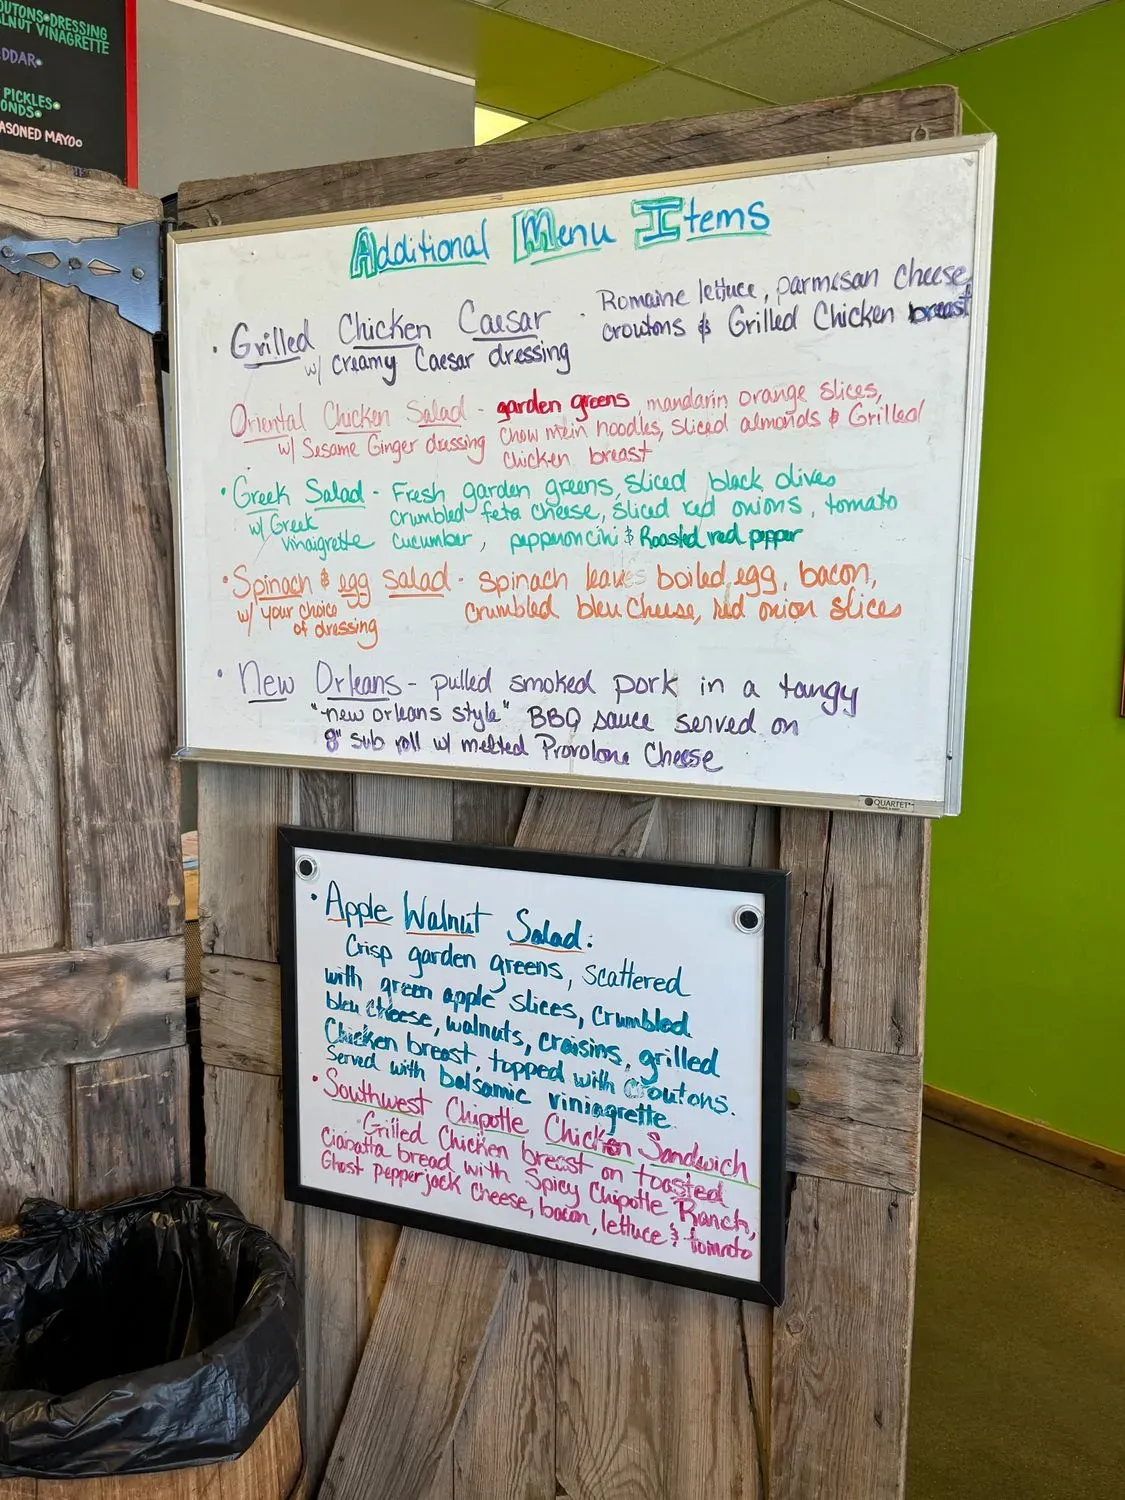 OUTONS•DRESSING
ALNUT VINAGRETTE
DDAR•
PICKLES•
ONDS•
ASONED MAYO•
Additional Menu Items
• Grilled Chicken Caesar - Romaine lettuce, parmesan cheese,
w/ creamy Caesar dressing croutons & Grilled Chicken breast
Oriental Chicken Salad - garden greens, mandarin orange slices,
w/ Sesame Ginger dressing chow mein noodles, sliced almonds & Grilled
chicken breast
• Greek Salad - Fresh garden greens, sliced black olives
w/ Greek crumbled feta cheese, sliced red onions, tomato
vinaigrette cucumber, pepperoncini & Roasted red pepper
• Spinach & egg salad - spinach leaves boiled egg, bacon,
w/ your choice crumbled bleu cheese, red onion slices
of dressing
• New Orleans - pulled smoked pork in a tangy
"new orleans style" BBQ sauce served on
8" sub roll w/ melted Provolone Cheese
QUARTET
• Apple Walnut Salad:
Crisp garden greens, scattered
with green apple slices, crumbled
bleu cheese, walnuts, craisins, grilled
Chicken breast, topped with croutons.
Served with balsamic viningrette
• Southwest Chipotle Chicken Sandwich
Grilled Chicken breast on toasted
Ciabatta bread with Spicy Chipotle Ranch,
Ghost pepperjack cheese, bacon, lettuce & tomato